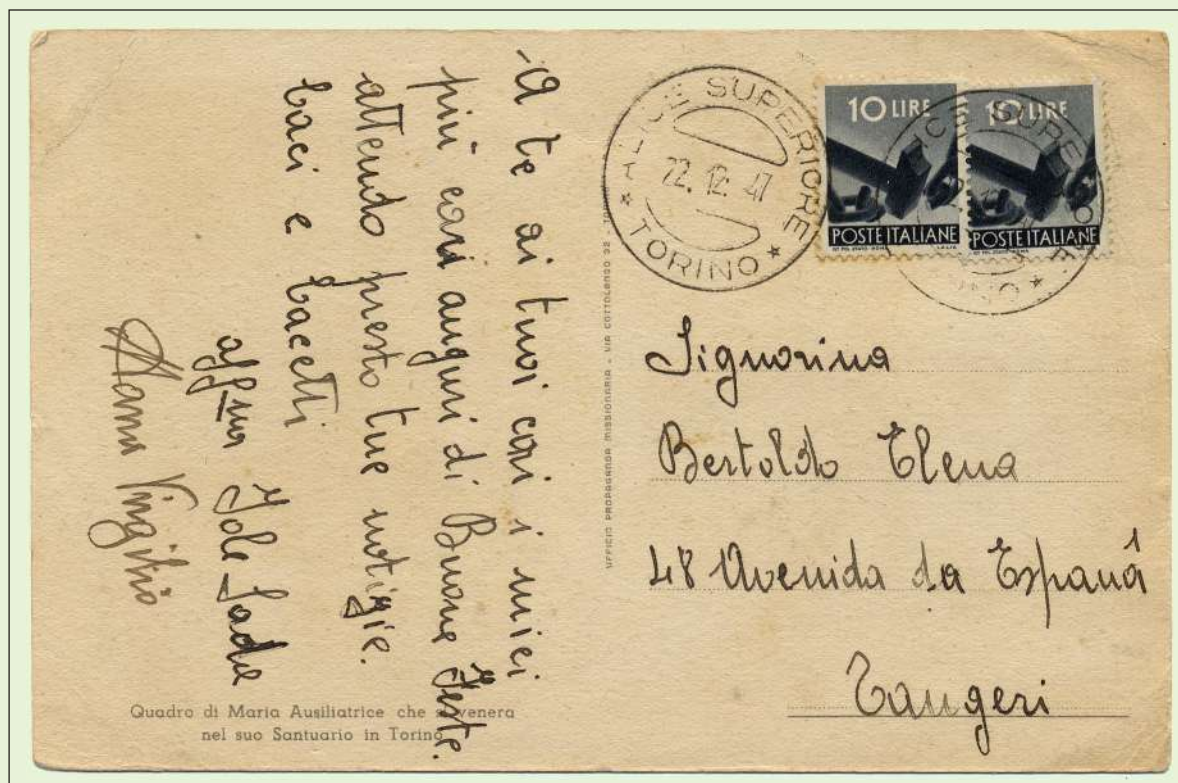 -A te ai tuoi cari i miei
più cari auguri di Buone Feste.
attendo presto tue notizie.
baci e bacetti
aff.ma Iole
Virgilio
Quadro di Maria Ausiliatrice che si venera
nel suo Santuario in Torino
UFFICIO PROPAGANDA MISSIONARIA - VIA COTTOLENGO 32 -
* ALICE SUPERIORE *
22.12.47
TORINO
10 LIRE
POSTE ITALIANE
10 LIRE
POSTE ITALIANE
Signorina
Bertoldo Elena
48 Avenida da España
Tangeri